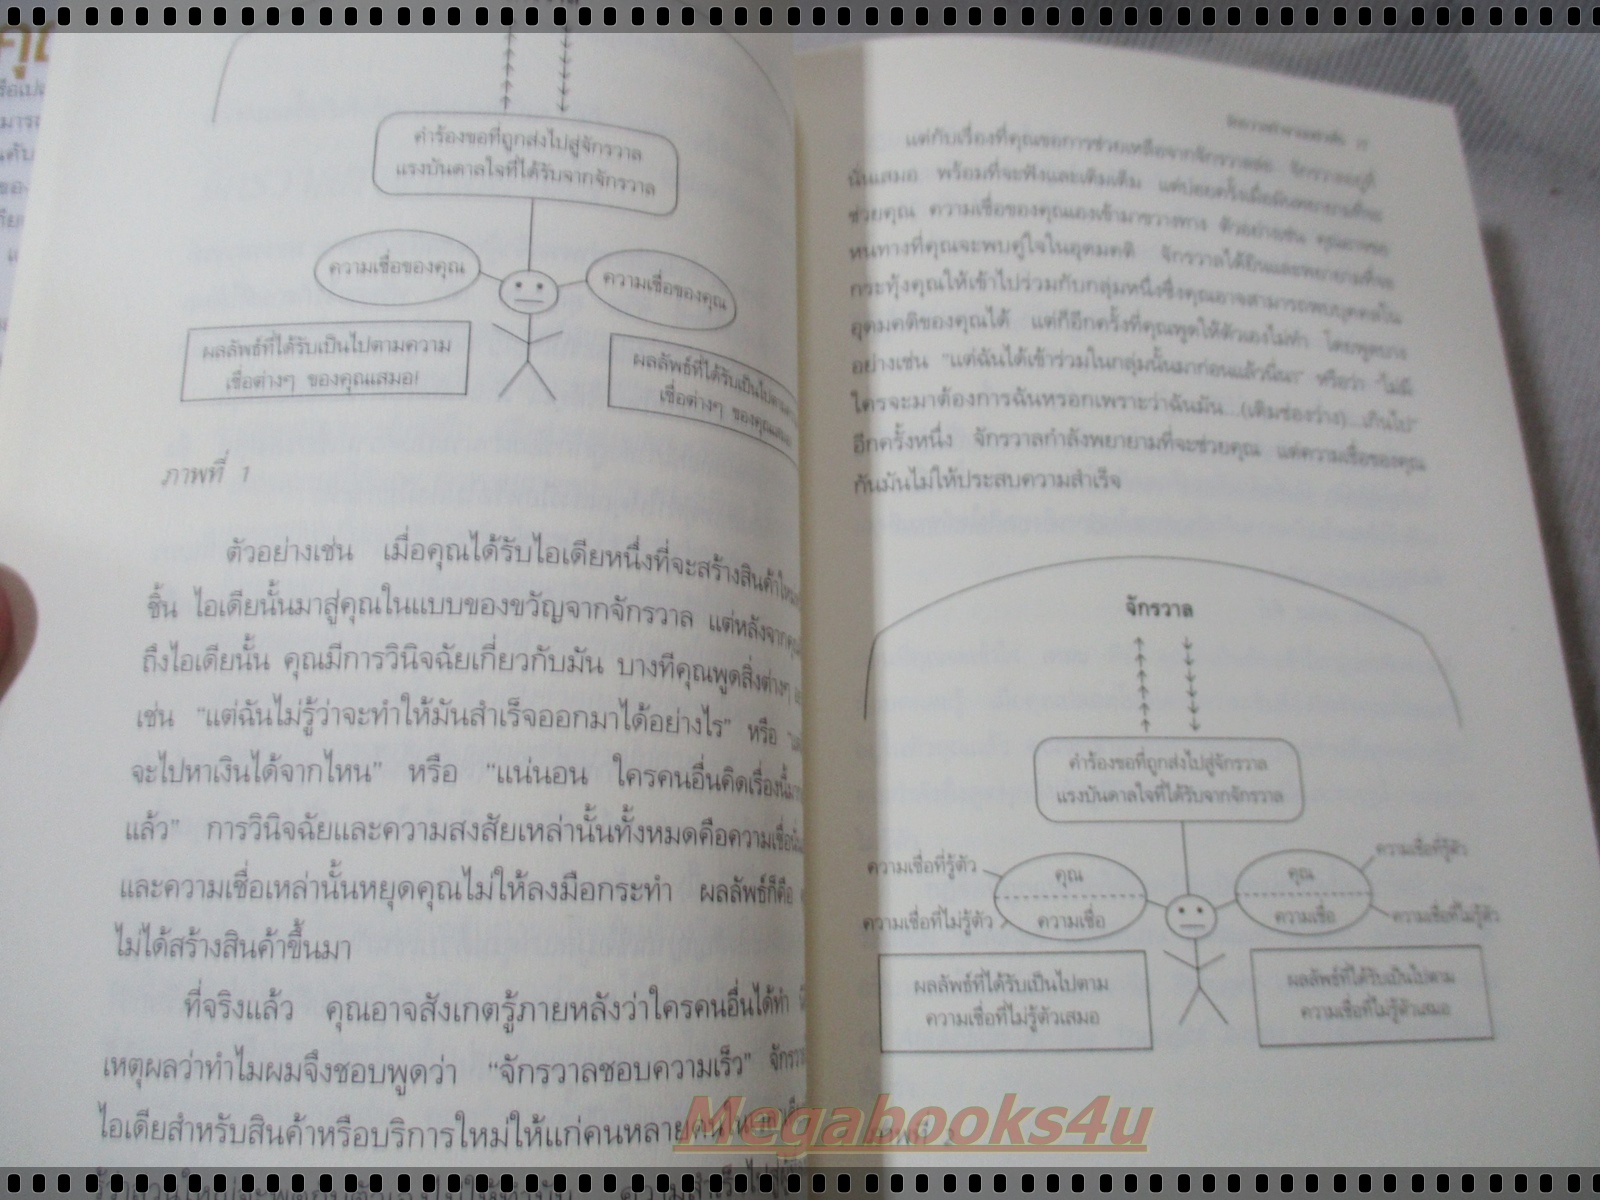 คำร้องขอที่ถูกส่งไปสู่จักรวาล
แรงบันดาลใจที่ได้รับจากจักรวาล
ความเชื่อของคุณ
ความเชื่อของคุณ
ผลลัพธ์ที่ได้รับเป็นไปตามความ
เชื่อต่างๆ ของคุณเสมอ!
ผลลัพธ์ที่ได้รับเป็นไปตาม
เชื่อต่างๆ ของคุณเสมอ
ภาพที่ 1
ตัวอย่างเช่น เมื่อคุณได้รับไอเดียหนึ่งที่จะสร้างสินค้าใหม่
ชิ้น ไอเดียนั้นมาสู่คุณในแบบของขวัญจากจักรวาล แต่หลังจาก
ถึงไอเดียนั้น คุณมีการวินิจฉัยเกี่ยวกับมัน บางทีคุณพูดสิ่งต่างๆ
เช่น "แต่ฉันไม่รู้ว่าจะทำให้มันสำเร็จออกมาได้อย่างไร" หรือ
จะไปหาเงินได้จากไหน" หรือ "แน่นอน ใครคนอื่นคิดเรื่องนี้
แล้ว" การวินิจฉัยและความสงสัยเหล่านั้นทั้งหมดคือความเชื่อ
และความเชื่อเหล่านั้นหยุดคุณไม่ให้ลงมือกระทำ ผลลัพธ์ก็คือ
ไม่ได้สร้างสินค้าขึ้นมา
ที่จริงแล้ว คุณอาจสังเกตรู้ภายหลังว่าใครคนอื่นได้ทำ
เหตุผลว่าทำไมผมจึงชอบพูดว่า "จักรวาลชอบความเร็ว"
ไอเดียสำหรับสินค้าหรือบริการใหม่ให้แก่คนหลายคนใน
แต่กับเรื่องที่คุณขอการช่วยเหลือจากจักรวาลล่ะ จักรวาลอยู่ที่
นั่นเสมอ พร้อมที่จะฟังและเติมเต็ม แต่บ่อยครั้งเมื่อมันพยายามที่จะ
ช่วยคุณ ความเชื่อของคุณเองเข้ามาขวางทาง ตัวอย่างเช่น คุณอาจขอ
หนทางที่คุณจะพบคู่ใจในอุดมคติ จักรวาลได้ยินและพยายามที่จะ
กระทุ้งคุณให้เข้าไปร่วมกับกลุ่มหนึ่งซึ่งคุณอาจสามารถพบบุคคลใน
อุดมคติของคุณได้ แต่ก็อีกครั้งที่คุณพูดให้ตัวเองไม่ทำ โดยพูดบาง
อย่างเช่น "แต่ฉันได้เข้าร่วมในกลุ่มนั้นมาก่อนแล้วนี่นา" หรือว่า "ไม่มี
ใครจะมาต้องการฉันหรอกเพราะว่าฉันมัน...(เติมช่องว่าง)...เกินไป"
อีกครั้งหนึ่ง จักรวาลกำลังพยายามที่จะช่วยคุณ แต่ความเชื่อของคุณ
กันมันไม่ให้ประสบความสำเร็จ
จักรวาล
คำร้องขอที่ถูกส่งไปสู่จักรวาล
แรงบันดาลใจที่ได้รับจากจักรวาล
ความเชื่อที่รู้ตัว
คุณ
คุณ
ความเชื่อที่รู้ตัว
ความเชื่อที่ไม่รู้ตัว
ความเชื่อ
ความเชื่อ
ความเชื่อที่ไม่รู้ตัว
ผลลัพธ์ที่ได้รับเป็นไปตาม
ความเชื่อที่ไม่รู้ตัวเสมอ
ผลลัพธ์ที่ได้รับเป็นไปตาม
ความเชื่อที่ไม่รู้ตัวเสมอ
Megabooks4u